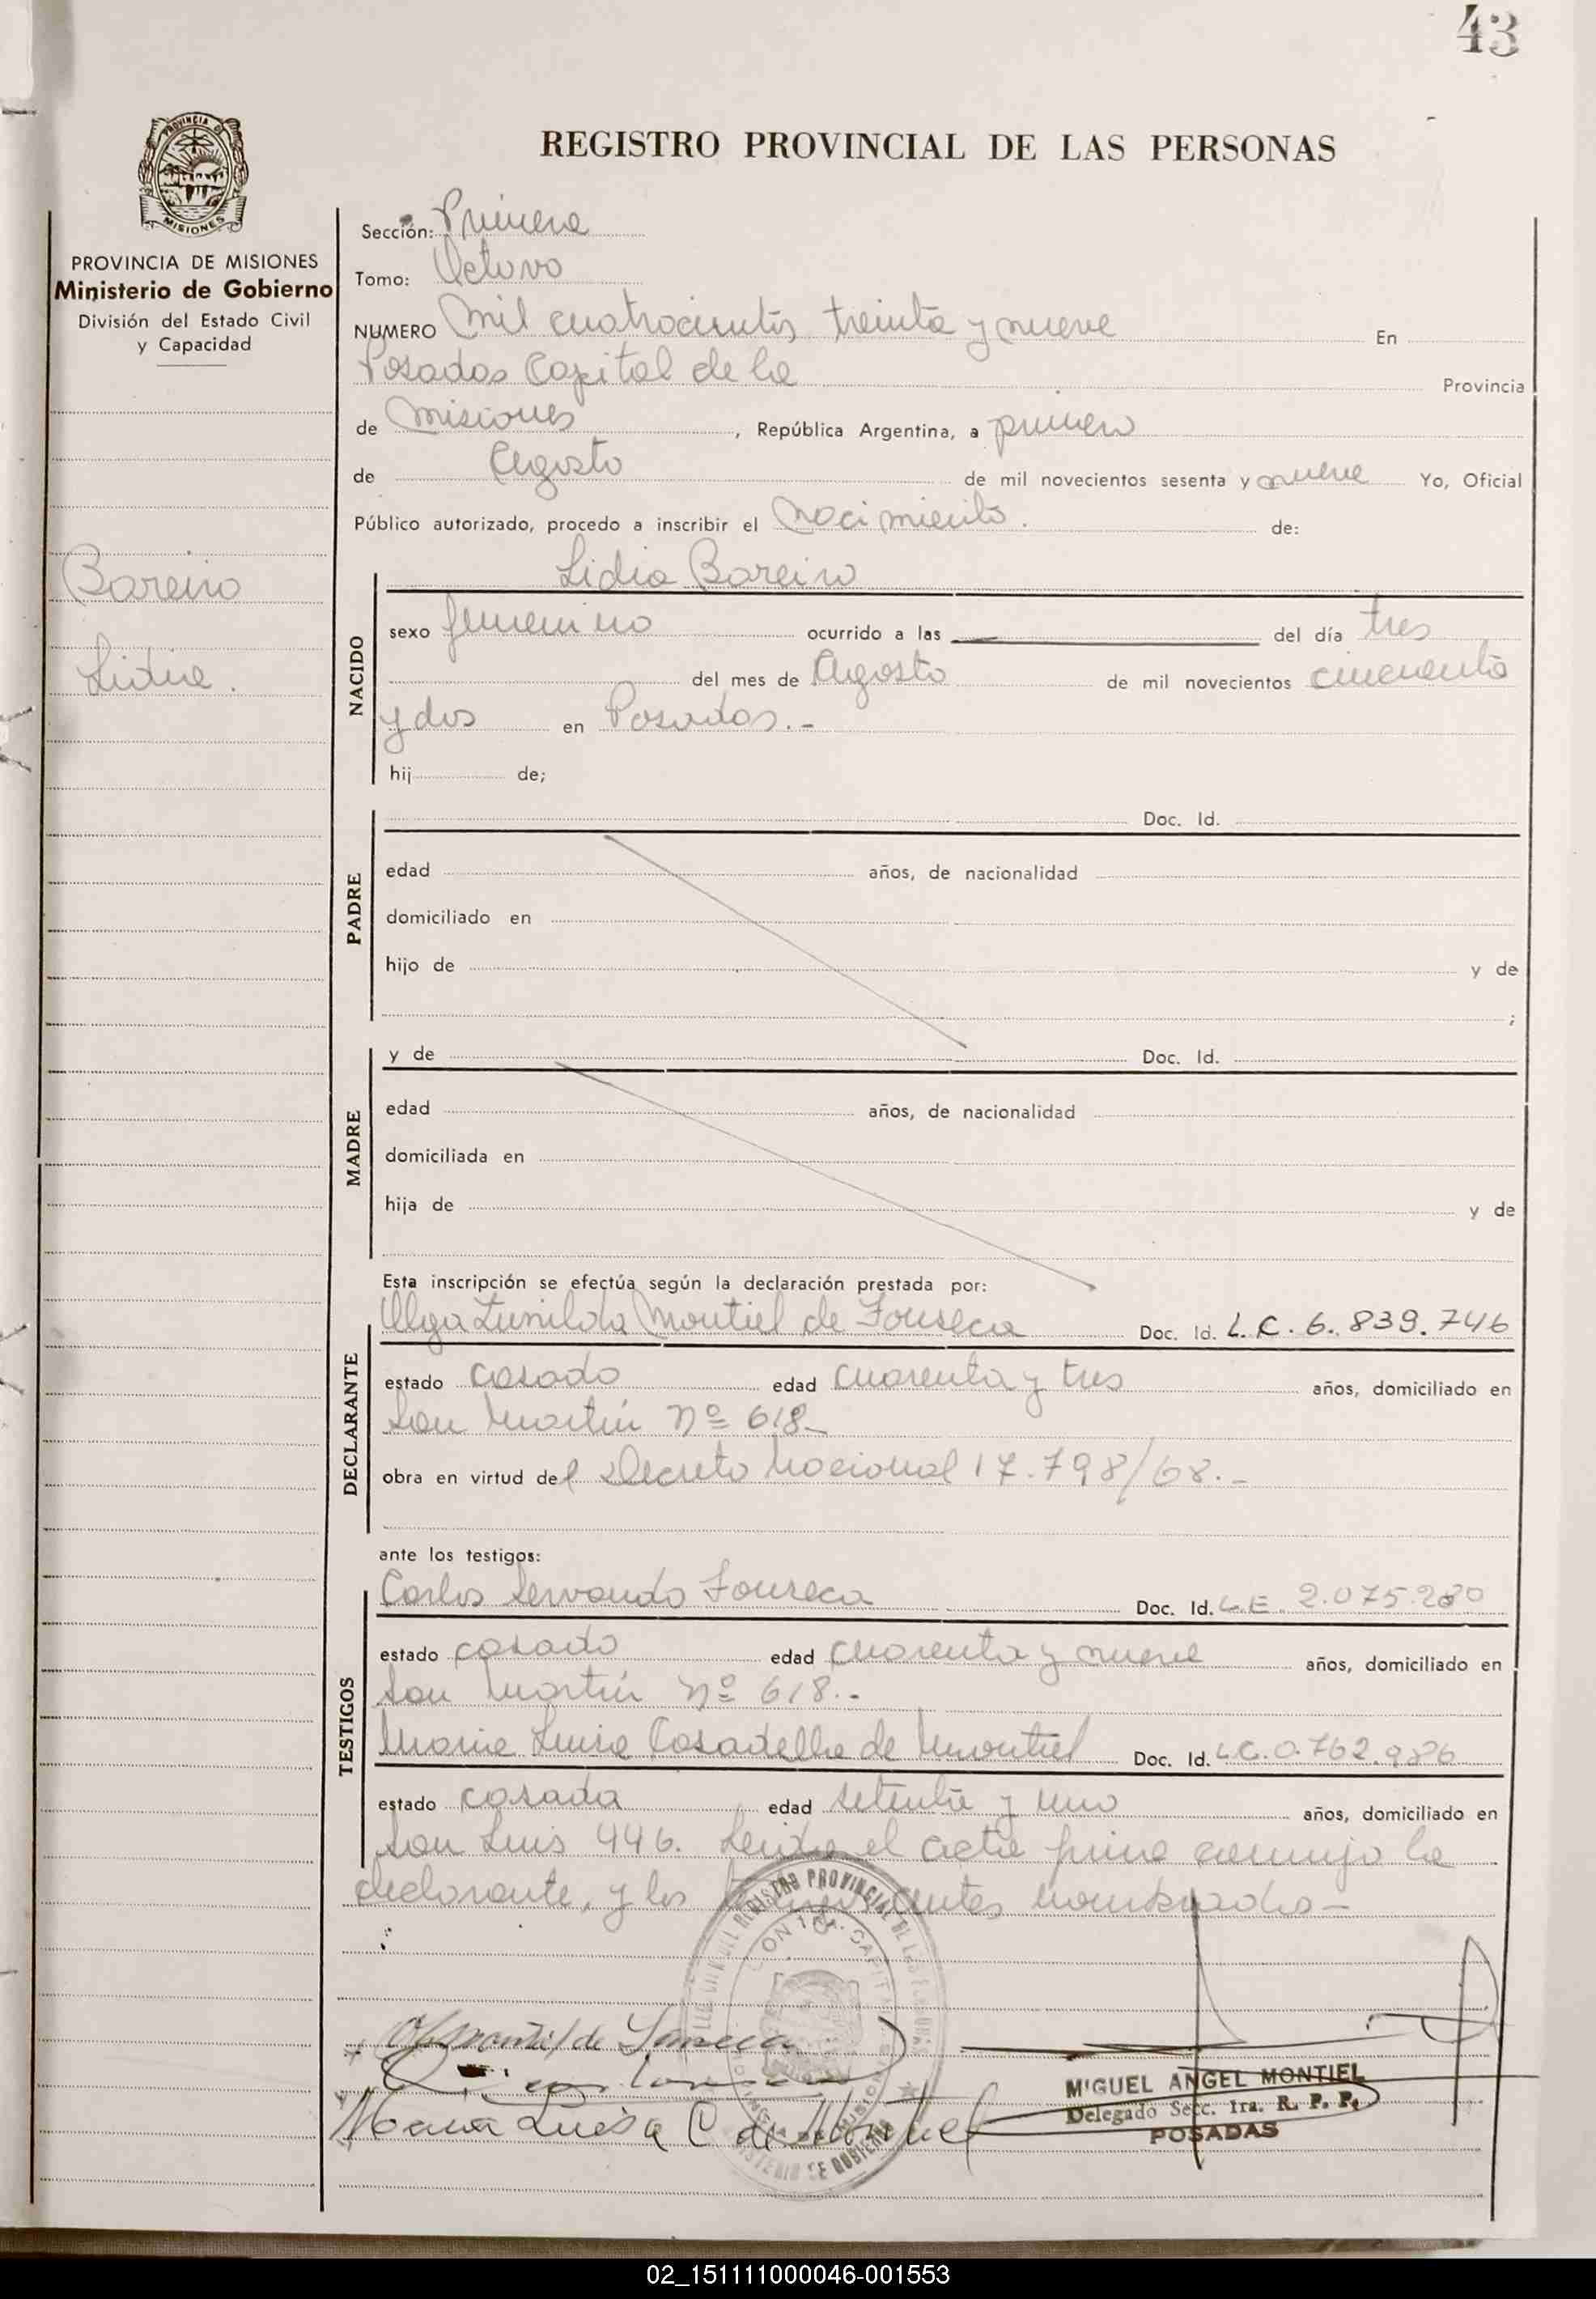 43
REGISTRO PROVINCIAL DE LAS PERSONAS
PROVINCIA DE MISIONES
Ministerio de Gobierno
División del Estado Civil
y Capacidad
Bareiro
Lidia.
Sección: Primera
Tomo: Octavo
NUMERO Mil cuatrocientos treinta y nueve En
Posadas Capital de la Provincia
de Misiones, República Argentina, a primero
de Agosto de mil novecientos sesenta y nueve Yo, Oficial
Público autorizado, procedo a inscribir el Nacimiento. de:
NACIDO
Lidia Bareiro
sexo femenino ocurrido a las del día tres
del mes de Agosto de mil novecientos cincuenta
y dos en Posadas.-
hij de;
PADRE
Doc. Id.
edad años, de nacionalidad
domiciliado en
hijo de y de
;
MADRE
y de Doc. Id.
edad años, de nacionalidad
domiciliada en
hija de y de
Esta inscripción se efectúa según la declaración prestada por:
DECLARANTE
Olga Lunilda Montiel de Fonseca Doc. Id. L.C. 6.839.746
estado casado edad cuarenta y tres años, domiciliado en
San Martín Nº 618-
obra en virtud del Decreto Nacional 17.798/68.-
ante los testigos:
TESTIGOS
Carlos Servando Fonseca Doc. Id. L.E. 2.075.280
estado casado edad cuarenta y nueve años, domiciliado en
San Martín Nº 618.-
Maria Luisa Casadella de Montiel Doc. Id. L.C. 0.762.986
estado casada edad setenta y uno años, domiciliado en
San Luis 446. Leida el acta firma conmigo la
declarante, y los nombrados-
REGISTRO PROVINCIAL DE LAS PERSONAS
MINISTERIO DE GOBIERNO
Montiel de Fonseca
Maria Luisa C de Montiel
MIGUEL ANGEL MONTIEL
Delegado Secc. 1ra. R. P. P.
POSADAS
02_151111000046-001553